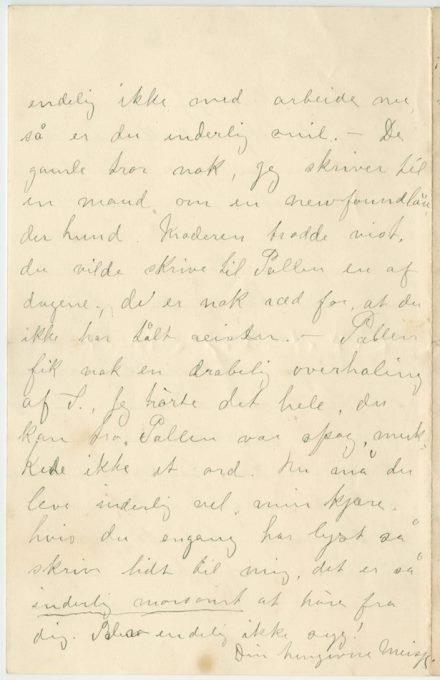 endelig ikke med arbeide nu,
så er du inderlig snil. – De
gamle tror nok, jeg skriver til
en mand om en newfoundlän
der hund. trodde vist,
du vilde skrive til Pallen en af
dagene., de er nok ræd for, at du
ikke har tålt reisen. – Pallen
fik nok en drabelig overhaling
af S., jeg hørte det hele, du
kan tro, Pallen var spag, muk
kede ikke et ord. Nu må du
leve inderlig vel, min kjære.
hvis du engang har lyst så
skriv lidt til mig, det er så
inderlig morsomt at høre fra
dig. Bliv endelig ikke syg!
Din hengivne